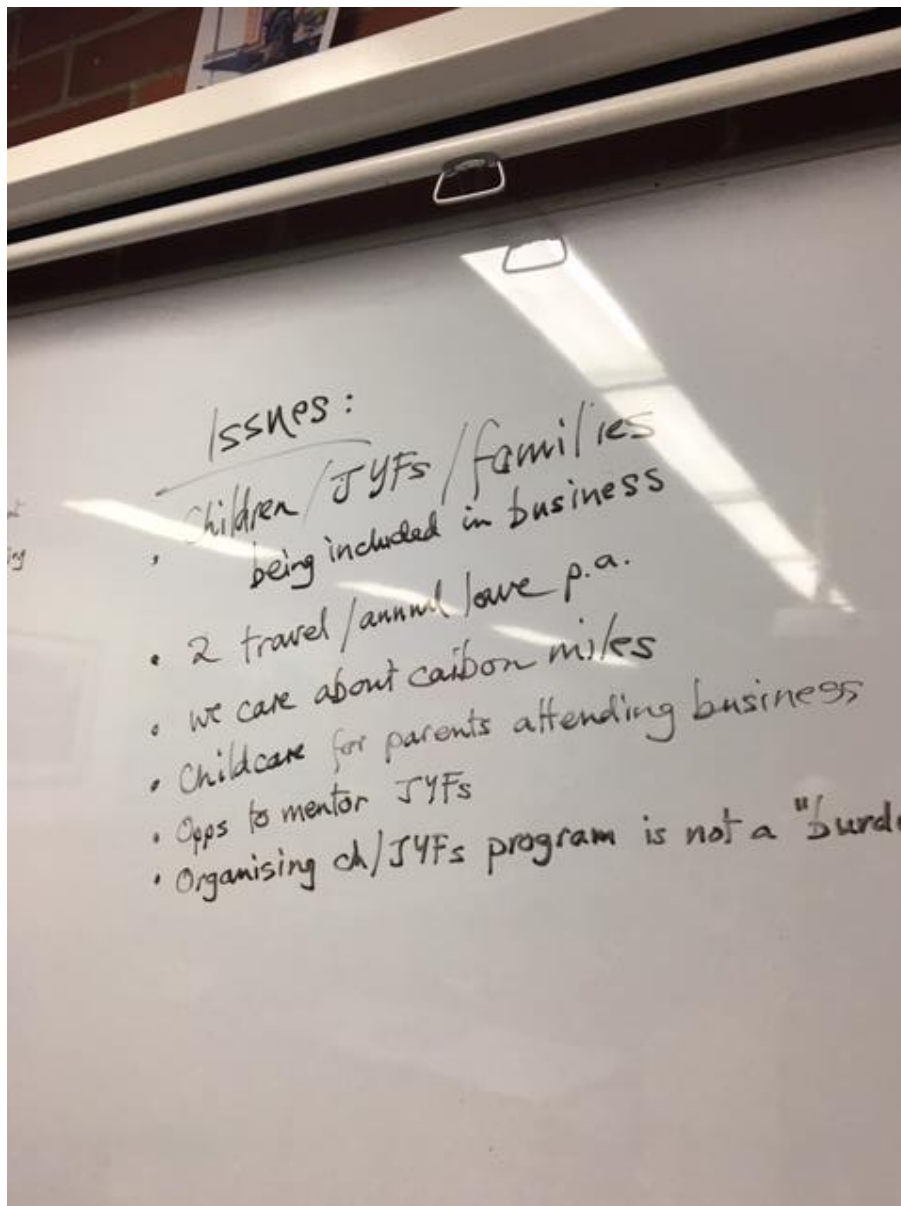 Issues:
• Children/JYFs/families
being included in business
• 2 travel/annual leave p.a.
• we care about carbon miles
• Childcare for parents attending business
• Opps to mentor JYFs
• Organising ch/JYFs program is not a "burd